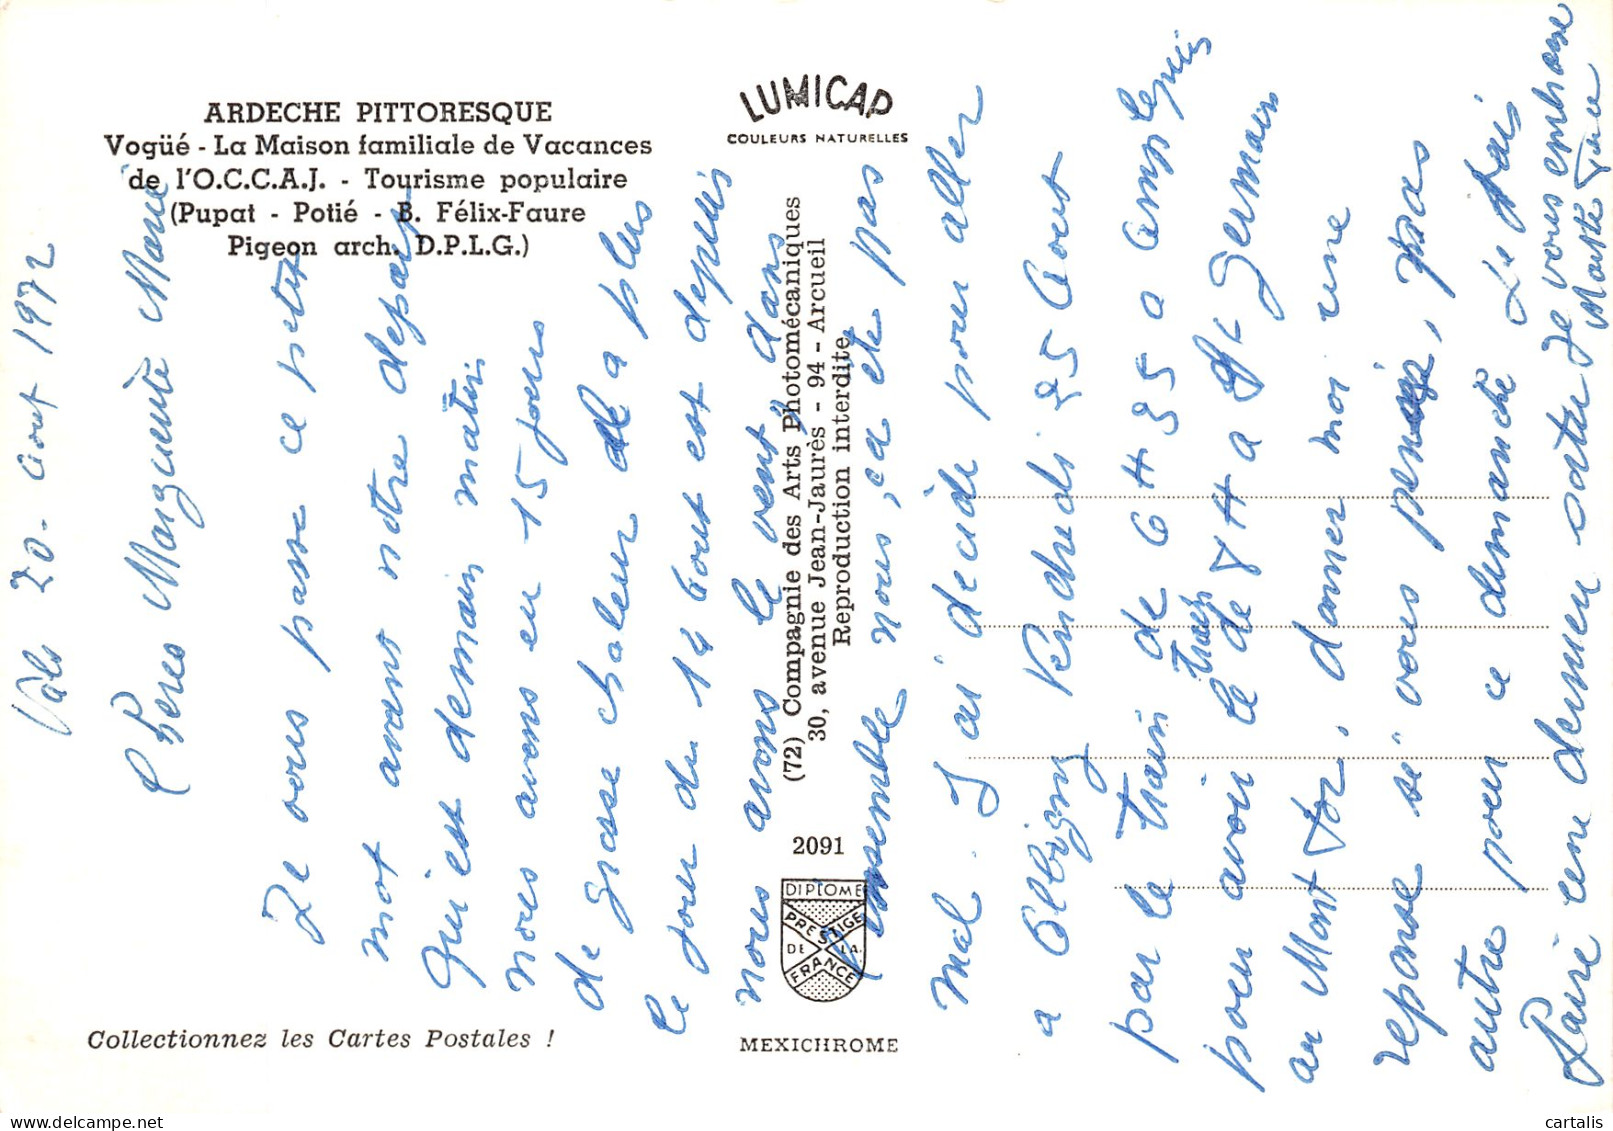 ARDECHE PITTORESQUE
Vogüé - La Maison familiale de Vacances
de l'O.C.C.A.J. - Tourisme populaire
(Pupat - Potié - B. Félix-Faure
Pigeon arch. D.P.L.G.)
LUMICAP
COULEURS NATURELLES
(72) Compagnie des Arts Photomécaniques
30, avenue Jean-Jaurès - 94 - Arcueil
Reproduction interdite
2091
DIPLOME
PRESTIGE
DE LA
FRANCE
MEXICHROME
Collectionnez les Cartes Postales !
Vals 20 - Aout 1972
Cheres Marguerite Marie
Je vous passe ce petit
mot avant notre depart
qui est demain matin
nous avons eu 15 jours
de grosse chaleur de plus
le jour du 14 Aout est depuis
nous avons le vent dans
l'ensemble nous, ca ete pas
mal. J'ai decide pour aller
a Albigny Vendredi 25 Aout
par le train de 6 H 35 a Camp
pour avoir le train de 8 H a St Germain
au Mont d'or, donner moi une
reponse si vous pensez, pas
autre pour ce dimanche
une dernier Je vous embrasse